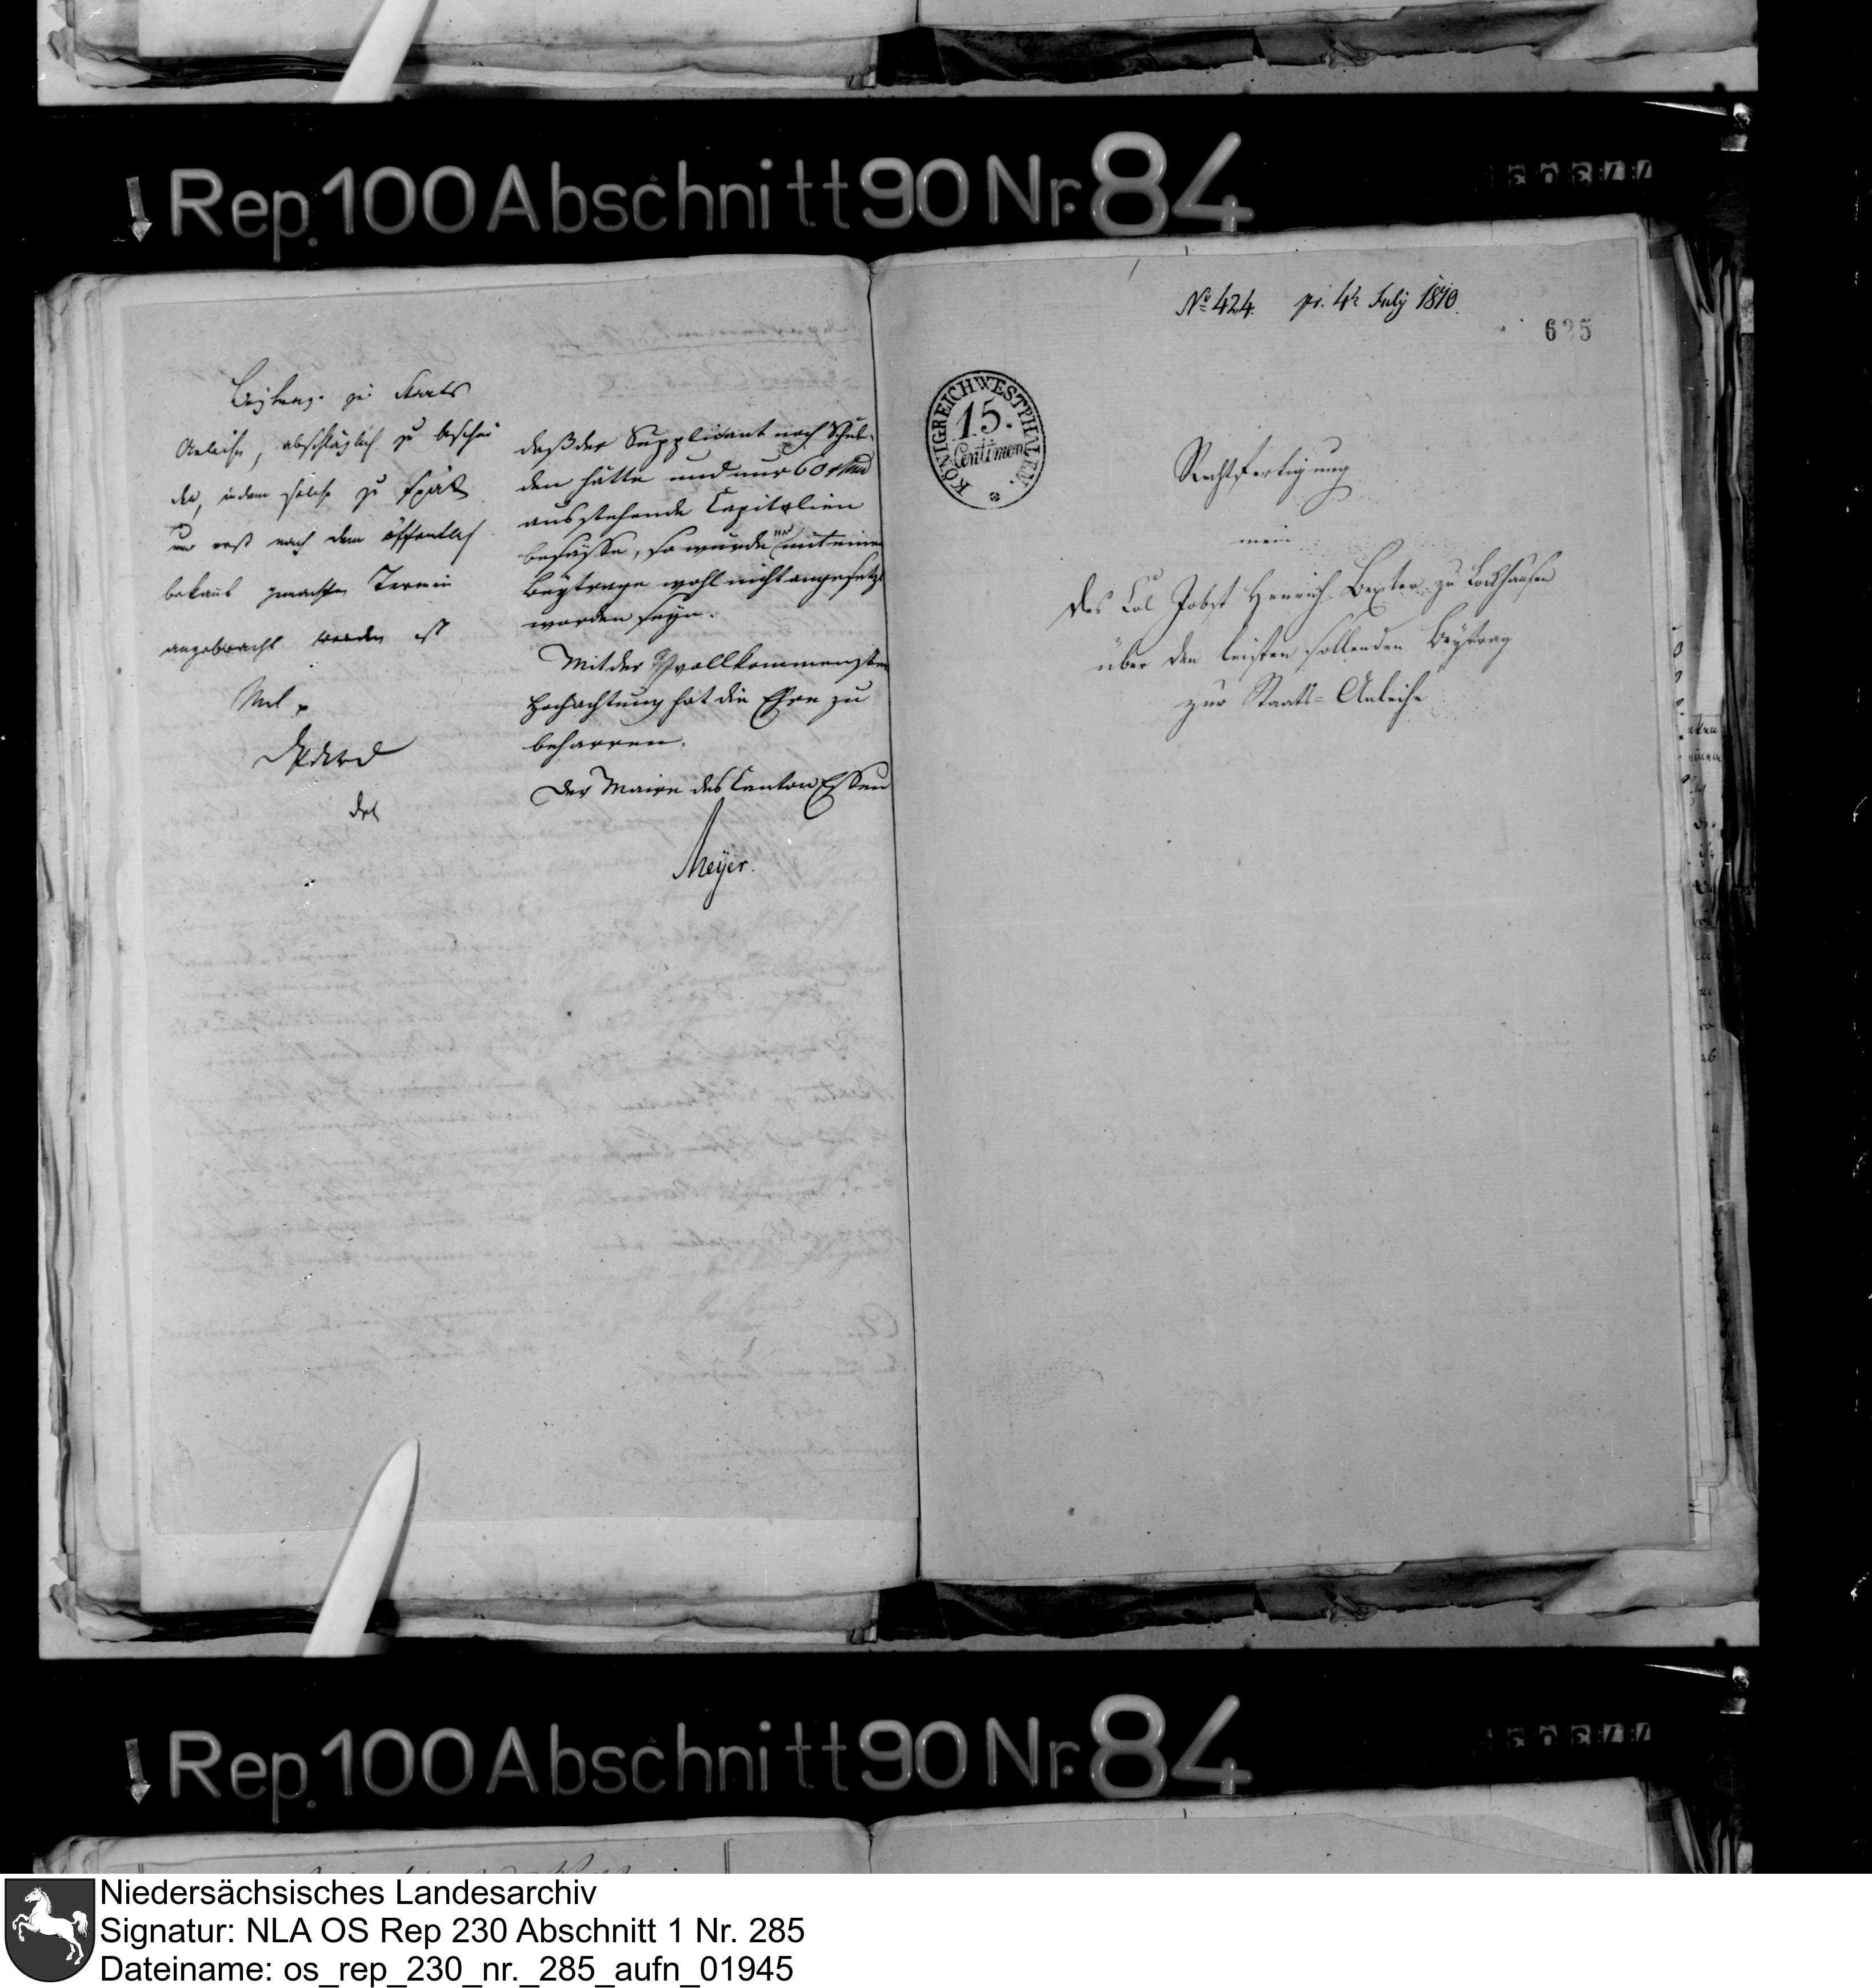 Rep. 100 Abschnitt 90 Nr. 84
Beytrag zu Staats
Anleihe, abschläglich zu beschei
den, indem solche zu spät
und erst nach dem öffentlich
bekannt gemachten Termin
angebracht worden ist
daß der Supplicant noch Schul-
den hätte und nur 60
ausstehende Capitalien
besässe, so wurde mit einem
Beytrage wohl nicht angesetzt
worden seyn.
Mit der vollkommensten
Hochachtung hat die Ehre zu
beharren.
Der Maire des Canton Essen
Meyer.
No 424. pr. 4t July 1810.
625
KÖNIGREICH WESTPHALEN.
15.
Centimen
Rechtfertigung
des Col Jobst Henrich Bexter zu Lockhausen
über den leisten sollenden Beytrag
zur Staats-Anleihe
Rep. 100 Abschnitt 90 Nr. 84
Niedersächsisches Landesarchiv
Signatur: NLA OS Rep 230 Abschnitt 1 Nr. 285
Dateiname: os_rep_230_nr._285_aufn_01945